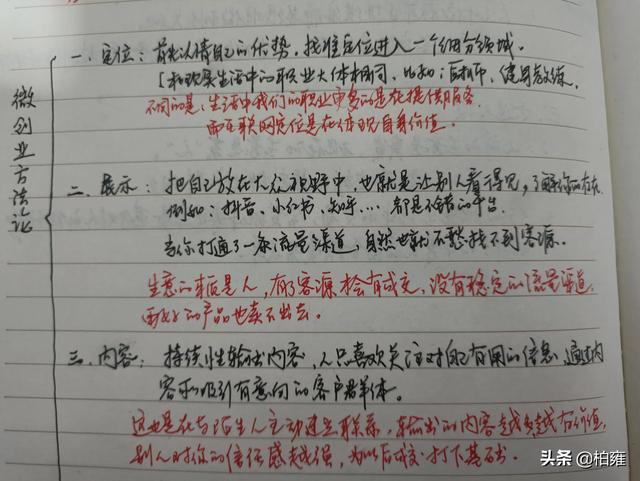 微创业方法论
一、定位：首先认清自己的优势，找准定位进入一个细分领域。
（和现实生活中的职业大体相同，比如：厨师，健身教练。
不同的是：生活中我们的职业更多的是在提供服务，
而互联网定位是在体现自身价值。
二、展示：把自己放在大众视野中，也就是让别人看得见，了解你的存在
例如：抖音、小红书、知乎…都是不错的平台。
当你打通了一条流量渠道，自然也就不愁找不到客源。
生意的本质是人，有了客源才会有成交，没有稳定的流量渠道，
再好的产品也卖不出去。
三、内容：持续性输出内容，人只喜欢关注对自己有用的信息，通过内
容来吸引有意向的客户群体。
这也是在与陌生人主动建立联系，输出的内容越多越有价值，
别人对你的信任感越强，为以后成交打下基础。
头条 @柏雍